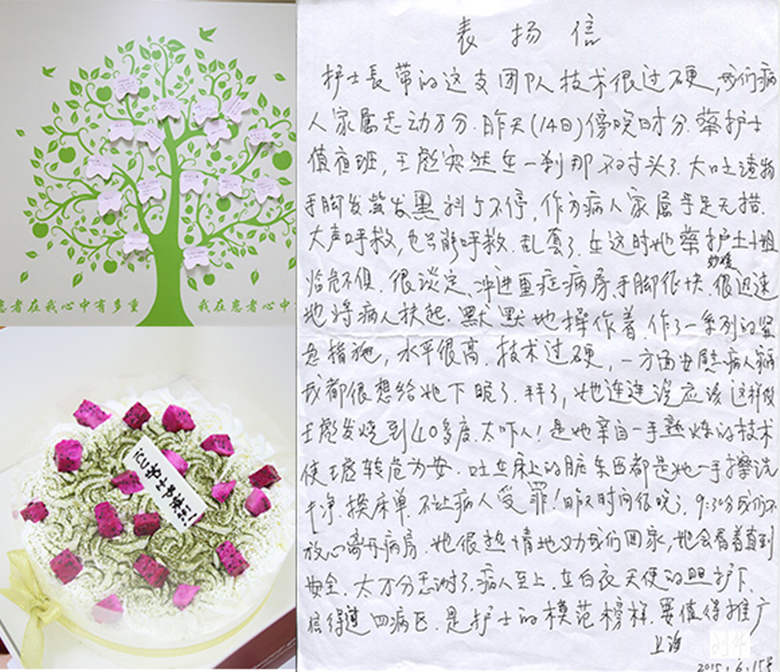 患者在我心中有多重 我在患者心中
表扬信
护士長带的这支团队技术很过硬，我们病
人家属感动万分。昨天(14日)傍晚时分. 护士
值夜班，王彪突然在一刹那不对头了. 大吐
手脚发 发黑抖个不停，作为病人家属手足无措.
大声呼救，也只能呼救. 乱套了. 在这时她 护士小姐
临危不惧. 很淡定、冲进重症病房、手脚很快. 很迅速
地将病人扶起. 默默地操作着 作了一系列的紧
急措施，水平很高. 技术过硬，一方面安慰病人
我都很想给她下跪了. 拜了，她连连说应该这样做
王彪发烧到40多度. 太吓人！是她亲自一手熟炼的技术
使王彪转危为安. 吐在床上的脏东西都是她一手擦洗
干净 换床单. 不让病人受罪！昨天时间很晚了. 9:30分我们不
放心离开病房. 她很热情地劝我们回家，她会看着直到
安全. 太万分感谢了. 病人至上. 在白衣天使的照护下.
信得过四病区. 是护士的模范榜样. 要值得推广
上海
2015.6.15日